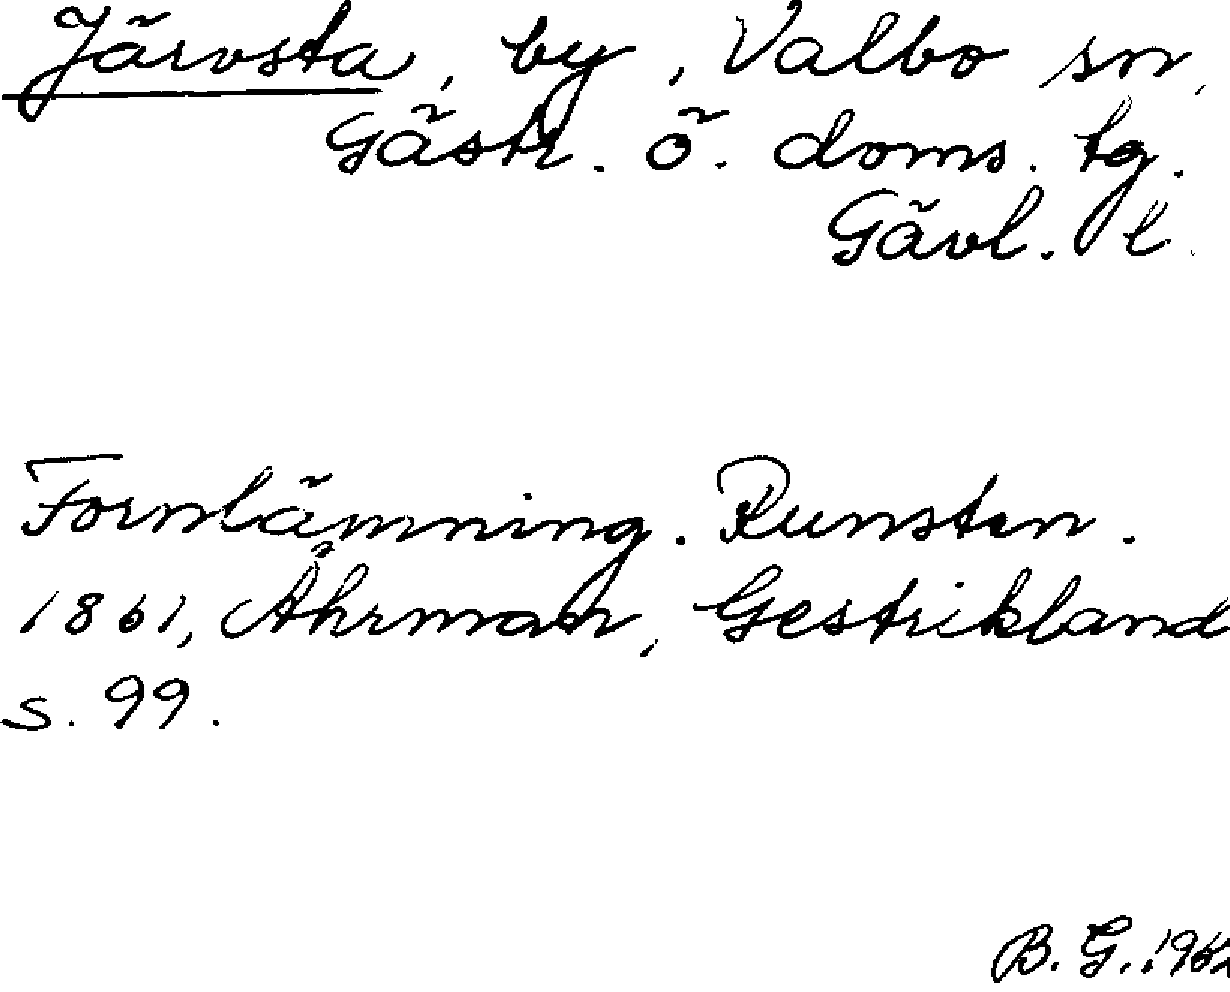 Järvsta, by, Valbo sn,
Gästr. ö. doms. tg.
Gävl. l.
Fornlämning. Runsten.
1861, Åhrman, Gestrikland
s. 99.
B. G.